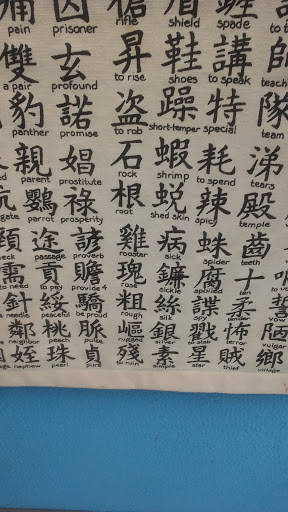 痛 囚 盾
pain prisoner rifle shield spade
雙 玄 昇 鞋 講 師
a pair profound to rise shoes to speak teach
豹 諾 盗 躁 特 隊
panther promise to rob short-temper special team
親 娼 石 蝦 耗 涕
parent prostitute rock shrimp to spend tears
鸚 祿 根 蛻 辣 殿
gate parrot prosperity root shed skin spicy temple
途 諺 雞 病 蛛 齒
passage proverb roaster sick spider teeth
需 貢 贍 瑰 鐮 腐 十
to need to pay provide 4 rose sickle spoiled ten
針 綏 驕 粗 絲 諜 柔 誓
needle peaceful be proud rough silk spy tender vow
鄰 桃 脈 嶇 銀 戳 怖 陋
neighbor peach pulse rugged silver to stab terror vulgar
姪 珠 貞 殘 素 星 賊 鄉
nephew pearl pure to ruin simple star thief village